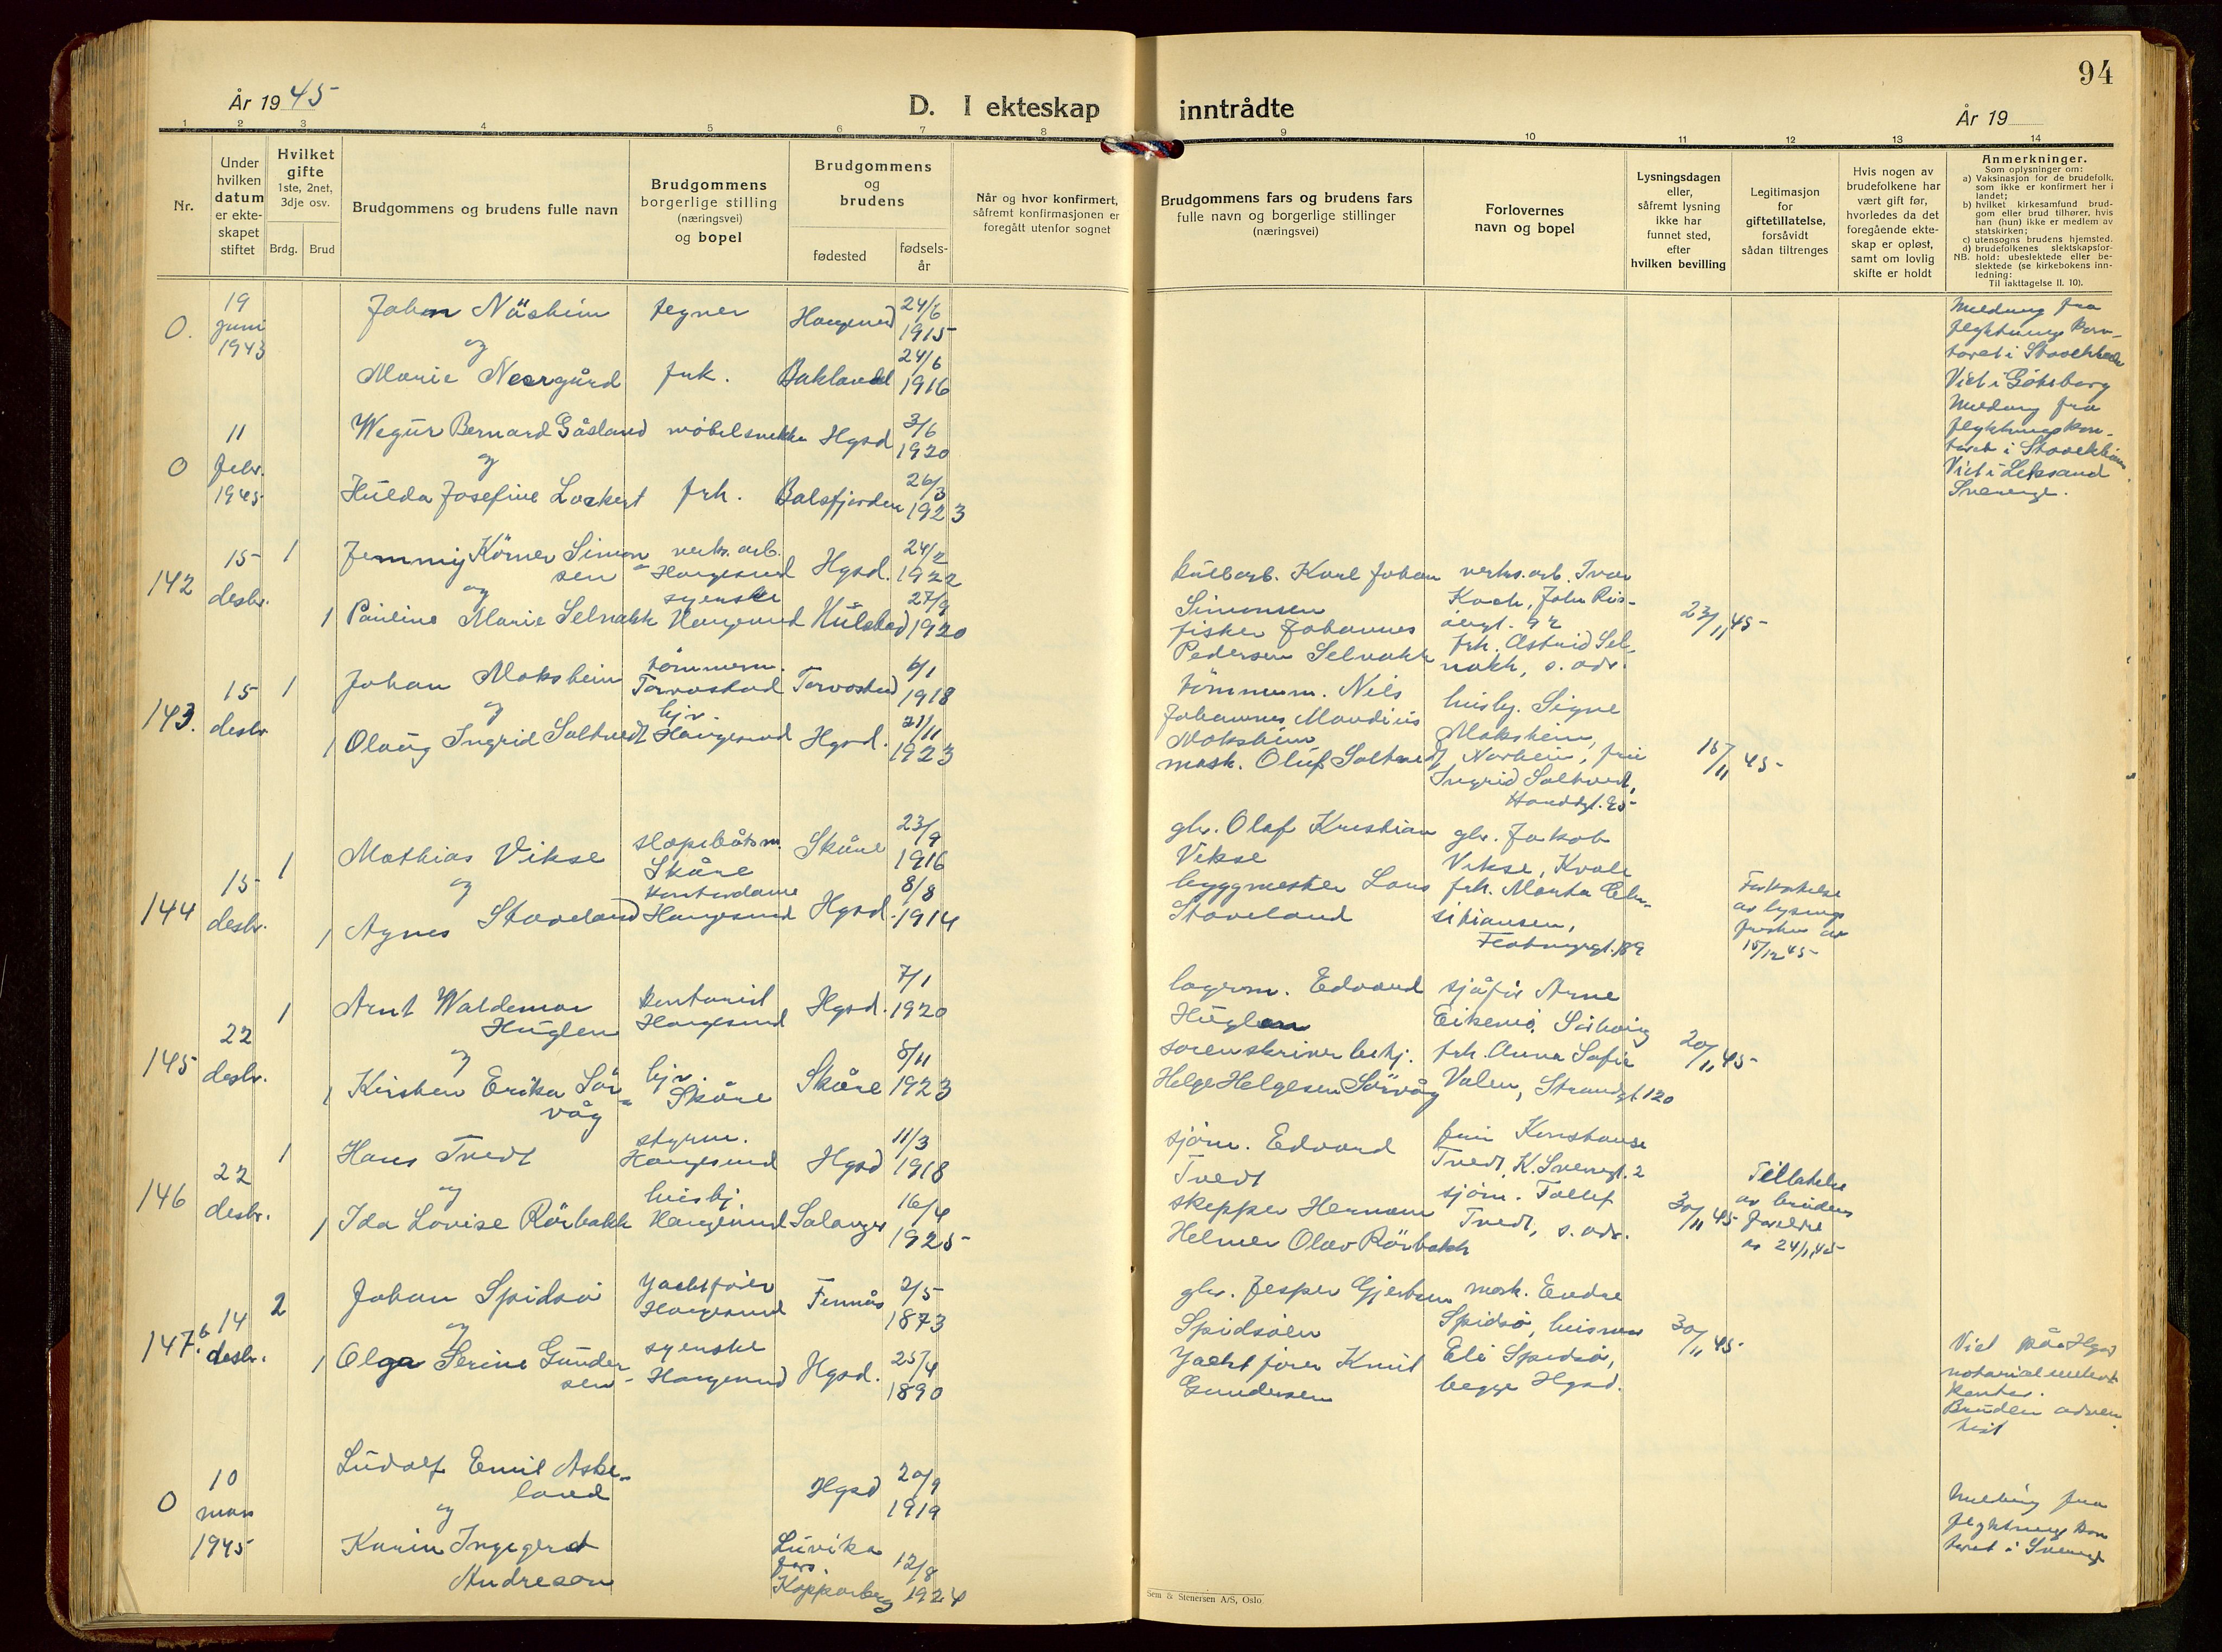 94
År 1945
D. I ekteskap inntrådte
År 19
1 2 3 4 5 6 7 8 9 10 11 12 13 14
Nr.
Under
hvilken
datum
er ekte-
skapet
stiftet
Hvilket
gifte
1ste, 2net,
3dje osv.
Brdg. Brud
Brudgommens og brudens fulle navn
Brudgommens
borgerlige stilling
(næringsvei)
og bopel
Brudgommens
og
brudens
fødested
fødsels-
år
Når og hvor konfirmert,
såfremt konfirmasjonen er
foregått utenfor sognet
Brudgommens fars og brudens fars
fulle navn og borgerlige stillinger
(næringsvei)
Forlovernes
navn og bopel
Lysningsdagen
eller,
såfremt lysning
ikke har
funnet sted,
efter
hvilken bevilling
Legitimasjon
for
giftetillatelse,
forsåvidt
sådan tiltrenges
Hvis nogen av
brudefolkene har
vært gift før,
hvorledes da det
foregående ekte-
skap er opløst,
samt om lovlig
skifte er holdt
Anmerkninger.
Som oplysninger om:
a) Vaksinasjon for de brudefolk,
som ikke er konfirmert her i
landet;
b) hvilket kirkesamfund brud-
gom eller brud tilhører, hvis
han (hun) ikke er medlem av
statskirken;
c) utensogns brudens hjemsted.
d) brudefolkenes slektskapsfor-
NB. hold: ubeslektede eller be-
slektede (se kirkebokens inn-
ledning:
Til iakttagelse II. 10).
0. 19 juni 1943
Johan Näsheim tegner 24/6 1915
og
Marie Neergård frk. Baklandet 24/6 1916
Melding fra
flyktningskon-
toret i Stockholm
Viet i Göteborg
0 11 febr. 1945
Wegur Bernard Gåsland møbelsnekker Hgsd 3/6 1920
og
Hulda Josefine Lockert frk. Balsfjorden 26/3 1923
Melding fra
flyktningskon-
toret i Stockholm
Viet i Leksand
Sverige.
142 15 desbr. 1
Jemmy Körner Simon- verks. arb. Hgsd. 24/2 1922
sen Haugesund
og syerske
1 Pauline Marie Selnakk Haugesund 27/9 1920
kullarb. Karl Johan
Simonsen
fisker Johannes
Pedersen Selnakk
verks. arb. Ivar
Koch,
frk. Astrid Sel-
nakk, s. adr.
23/11 45
143. 15 desbr 1
Johan Moksheim tømmerm. Torvastad Torvastad 6/1 1918
og hjv.
1 Olaug Ingrid Saltvedt Haugesund Hgsd. 21/11 1923
tømmerm. Nils
Johannes Maudius
Moksheim
mask. Oluf Saltvedt
husbg. Signe
Moksheim,
Norheim, frú
Ingrid Saltvedt,
15/11 45
144 15 desbr. 1
Mathias Vikse slepebåtsm. Skåre Skåre 23/9 1916
og kontordame
1 Agnes Staveland Haugesund Hgsd. 8/8 1914
gbr. Olaf Kristian
Vikse
byggmester Lars
Staveland
gbr. Jakob
Vikse, Kvale
frk. Marta Chri-
stiansen,
Flotmyrgt. 189
av lysnings
15/12 45
145 22 desbr. 1
Arnt Waldemar kontorist Hgsd. 7/1 1920
Huglen Haugesund
og
1 Kirsten Erika Sør- hjv. Skåre 8/11 1923
våg Skåre
lagerm. Edvard
Huglen
sorenskriverbetj.
Helge Helgesen Sørvåg
sjåfør Arne
Eikemo,
frk. Anna Sofie
Valen, Strandgt. 120
20/11 45
146 22 desbr. 1
Hans Tvedt styrm. Haugesund Hgsd 11/3 1918
og
1 Ida Lovise Rörbakk Haugesund Salangen 16/4 1925
sjøm. Edvard
Tvedt
skipper Herman
Helmer Olav Rörbakk
fru Konstanse
Tvedt, K. Sverresgt. 2
sjøm. Tollef
Tvedt, s. adr.
30/11 45
Tillatelse
av brudens
foreldre
av 24/11 45
147. b 14 desbr. 2
Johan Spidsø Yachtfører Haugesund Finnås 2/5 1873
og syerske
1 Olga Serine Gunder- Haugesund Hgsd. 25/4 1890
sen
gbr. Jesper Gjertsen
Spidsøen
Yachtfører Knut
Gundersen
mask. Endre
Spidsø,
Eli Spidsø,
begge Hgsd.
30/11 45
Viet på Hgsd
kontor.
Bruden adven-
tist
0 10 mars 1945
Ludolf Emil Aske- Hgsd 20/9 1919
land
og
Karin Ingegerd
Andreson Kopparberg 12/8 1924
Melding fra
flyktningskon
toret i Sverige
Sem & Stenersen A/S, Oslo.